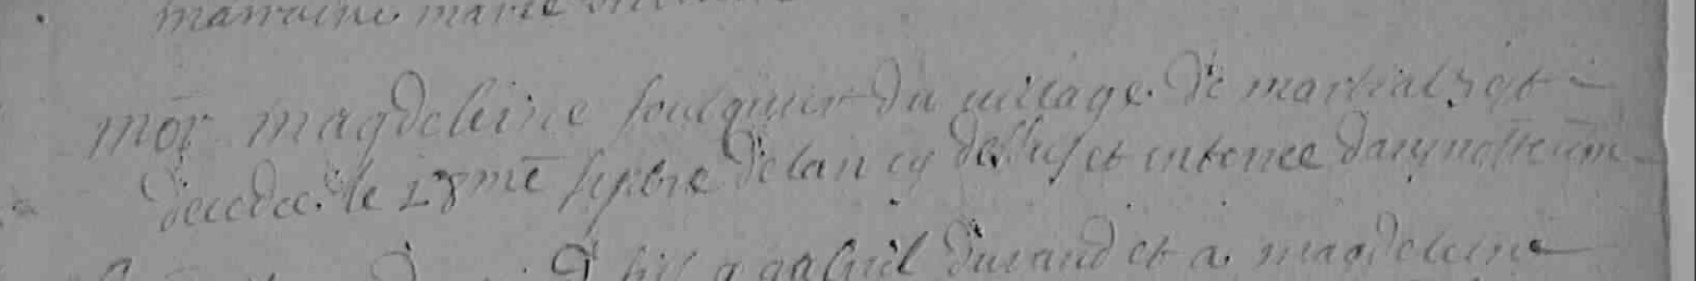 marraine marie
mor magdeleine foulquier du village de martialz est
decedee le 28me septbre de lan cy dessus et enterree dans nostre cim
fils a gabriel durand et a magdeleine